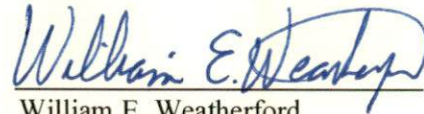 William E. Weatherford
William E. Weatherford